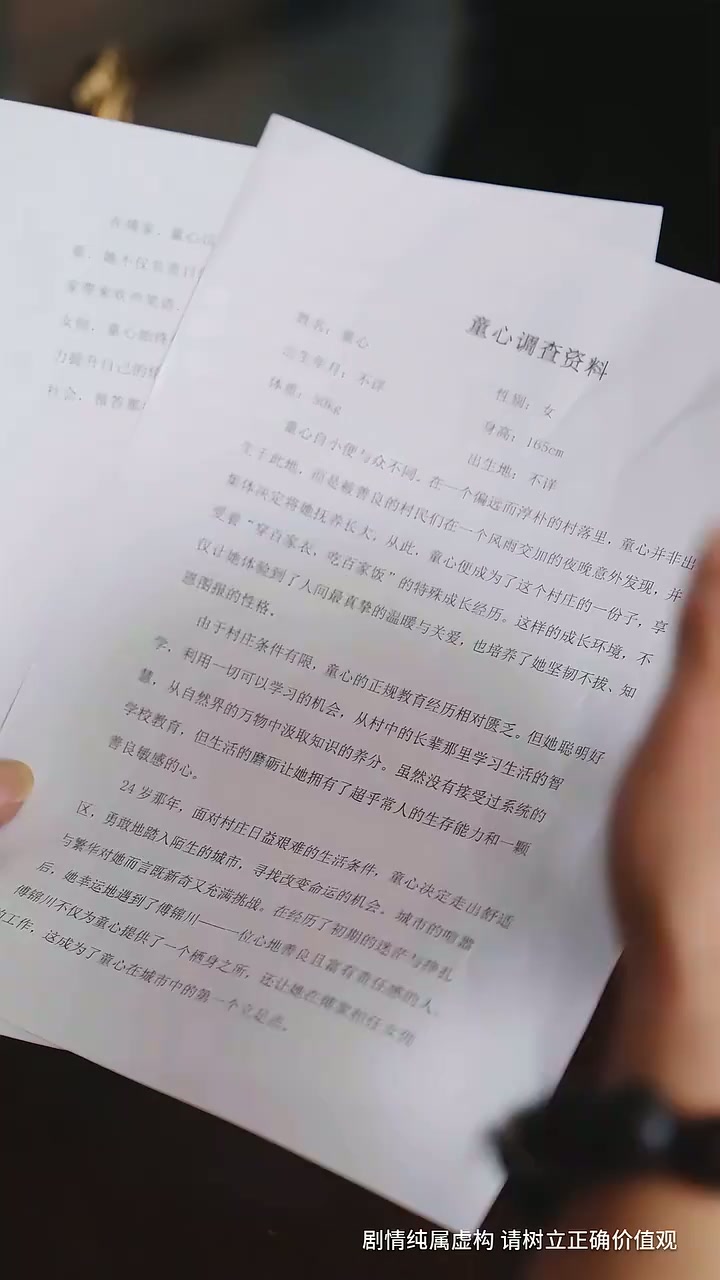 童心调查资料
姓名：童心
性别：女
出生年月：不详
身高：165cm
体重：50kg
出生地：不详
童心自小便与众不同，在一个偏远而淳朴的村落里，童心并非出
生于此地，而是被善良的村民们在一个风雨交加的夜晚意外发现，并
集体决定将她抚养长大，从此，童心便成为了这个村庄的一份子，享
受着“穿百家衣，吃百家饭”的特殊成长经历。这样的成长环境，不
仅让她体验到了人间最真挚的温暖与关爱，也培养了她坚韧不拔、知
恩图报的性格。
由于村庄条件有限，童心的正规教育经历相对匮乏。但她聪明好
学，利用一切可以学习的机会，从村中的长辈那里学习生活的智
慧，从自然界的万物中汲取知识的养分。虽然没有接受过系统的
学校教育，但生活的磨砺让她拥有了超乎常人的生存能力和一颗
善良敏感的心。
24 岁那年，面对村庄日益艰难的生活条件，童心决定走出舒适
区，勇敢地踏入陌生的城市，寻找改变命运的机会。城市的喧嚣
与繁华对她而言既新奇又充满挑战。在经历了初期的迷茫与挣扎
后，她幸运地遇到了傅锦川——一位心地善良且富有责任感的人。
傅锦川不仅为童心提供了一个栖身之所，还让她在傅家担任女佣
的工作，这成为了童心在城市中的第一个立足点。
在傅家，童心
她不仅负责
家带来欢声笑语
女佣，童心始终
力提升自己的
社会，报答那
剧情纯属虚构 请树立正确价值观